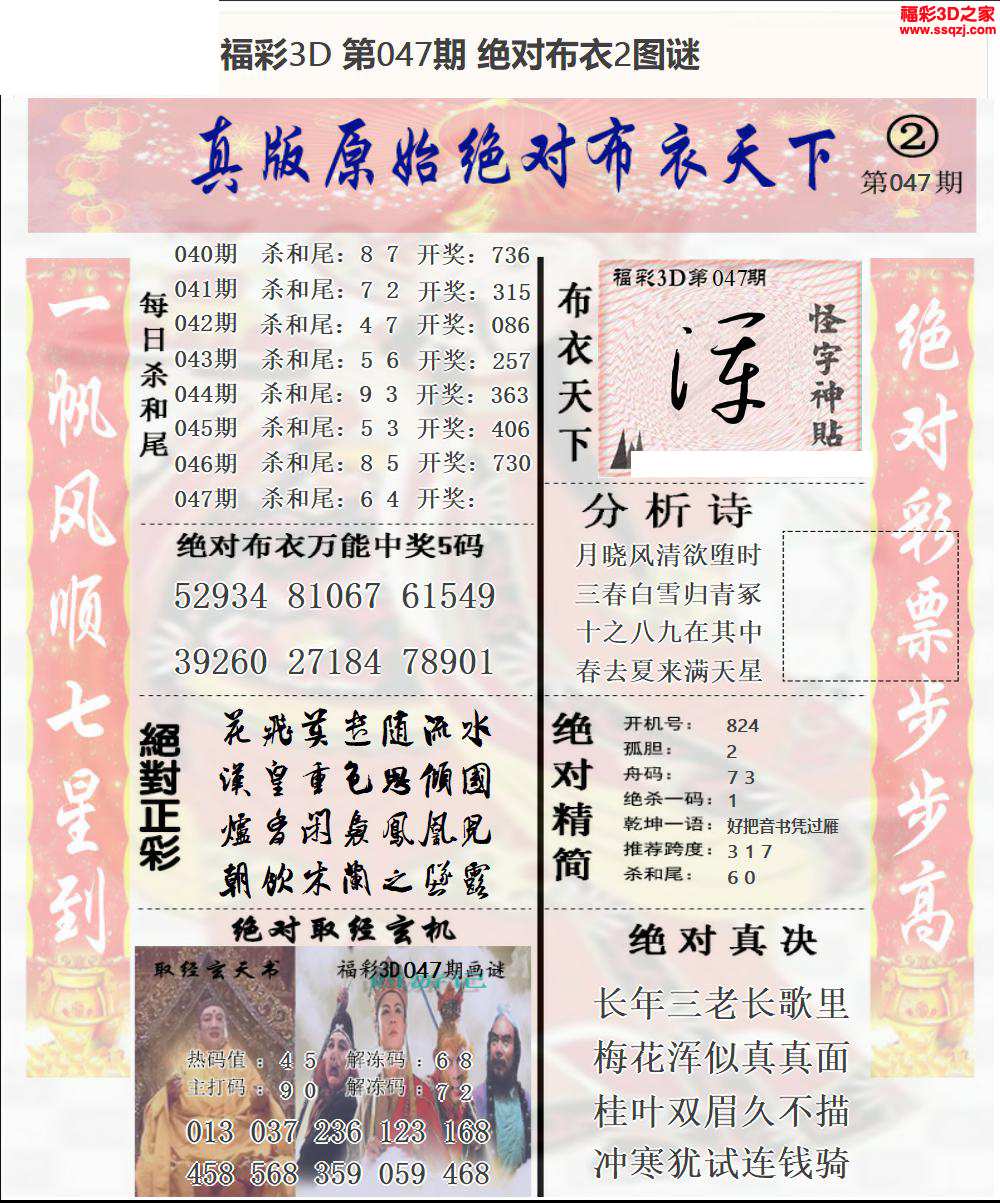 福彩3D之家
www.ssqzj.com
福彩3D 第047期 绝对布衣2图谜
真版原始绝对布衣天下
②
第047期
一帆风顺七星到
每日杀和尾
040期 杀和尾: 8 7 开奖: 736
041期 杀和尾: 7 2 开奖: 315
042期 杀和尾: 4 7 开奖: 086
043期 杀和尾: 5 6 开奖: 257
044期 杀和尾: 9 3 开奖: 363
045期 杀和尾: 5 3 开奖: 406
046期 杀和尾: 8 5 开奖: 730
047期 杀和尾: 6 4 开奖:
绝对布衣万能中奖5码
52934 81067 61549
39260 27184 78901
絕對正彩
花飛莫遣随流水
漢皇重色思傾國
爐香闲裊鳳凰児
朝飲木蘭之墜露
绝对取经玄机
取经玄天书
福彩3D047期画谜
热码值:4 5 解冻码:6 8
主打码:9 0 解冻码:7 2
013 037 236 123 168
458 568 359 059 468
布衣天下
福彩3D第047期
怪字神貼
分析诗
月晓风清欲堕时
三春白雪归青冢
十之八九在其中
春去夏来满天星
绝对精简
开机号: 824
孤胆: 2
舟码: 7 3
绝杀一码: 1
乾坤一语: 好把音书凭过雁
推荐跨度: 3 1 7
杀和尾: 6 0
绝对真决
长年三老长歌里
梅花浑似真真面
桂叶双眉久不描
冲寒犹试连钱骑
绝对彩票步步高